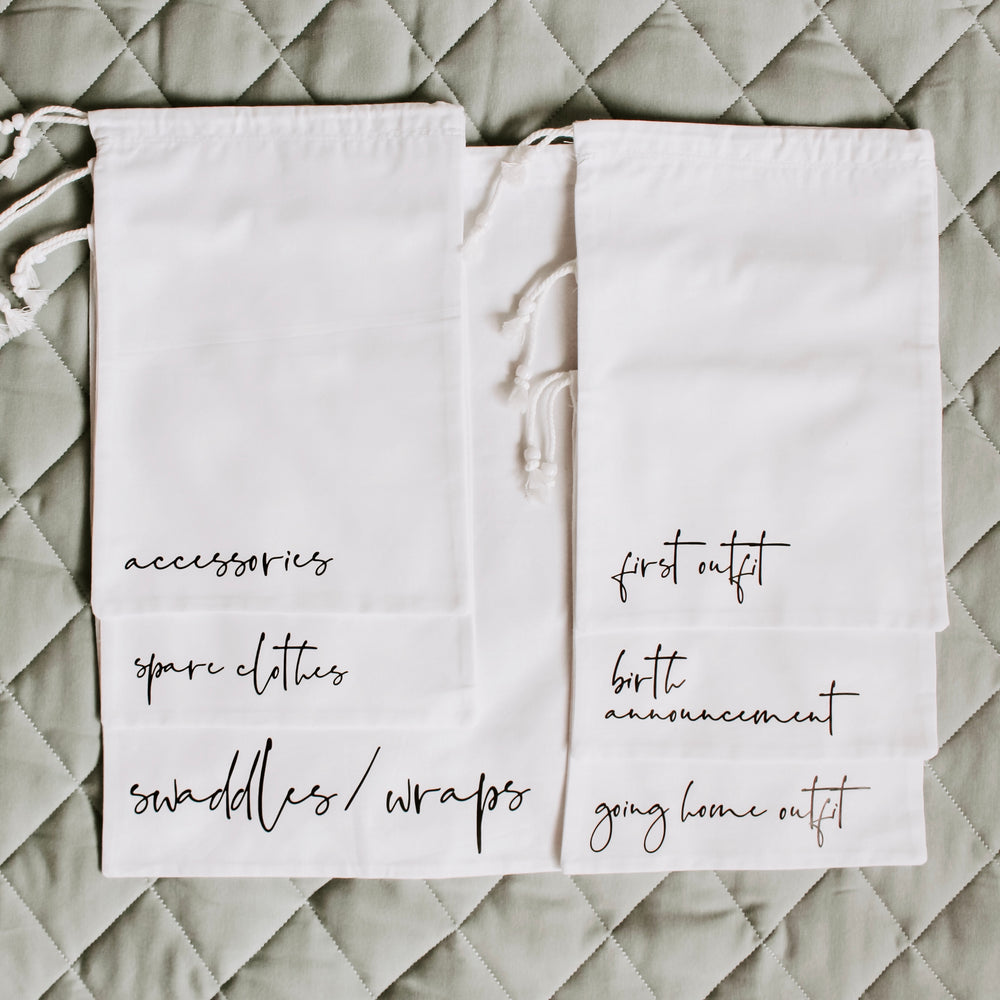 accessories
spare clothes
swaddles/wraps
first outfit
birth
announcement
going home outfit